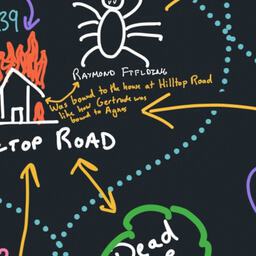 39
RAYMOND FIELDING
Was bound to the house at Hilltop Road
like how Gertrude was
bound to Agnes
LTOP ROAD
Dead